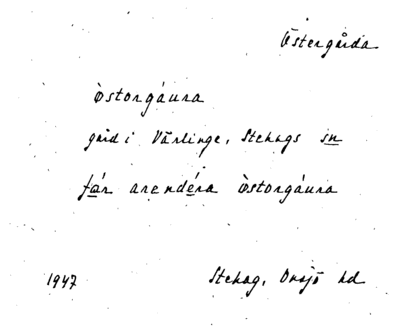 Östergårda
òstorgáura
gård i Värlinge, Stehags sn
fár arendéra òstorgáura
1947 Stehag, Onsjö hd